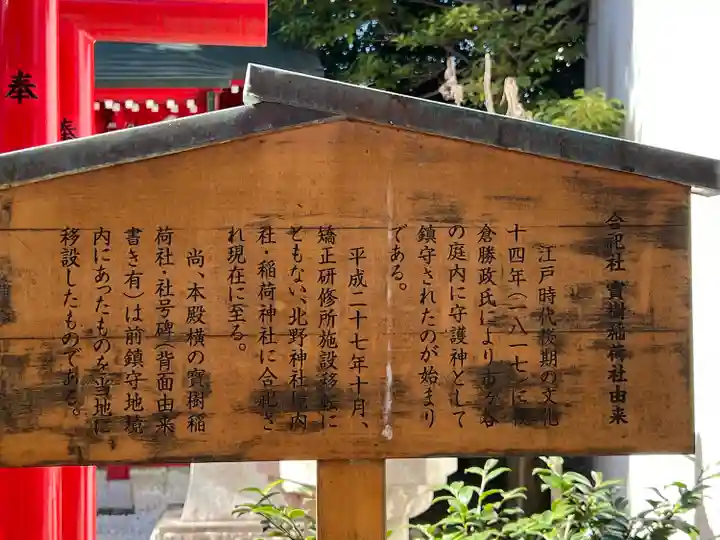 合祀社 寶樹稲荷社由来
江戸時代後期の文化
十四年(一八一七)に板
倉勝政氏により市ヶ谷
の庭内に守護神として
鎮守されたのが始まり
である。
平成二十七年十月、
矯正研修所施設移転に
ともない、北野神社境内
社・稲荷神社に合祀さ
れ現在に至る。
尚、本殿横の寶樹稲
荷社・社号碑(背面由来
書き有)は前鎮守地境
内にあったものを当地に
移設したものである。
奉
奉